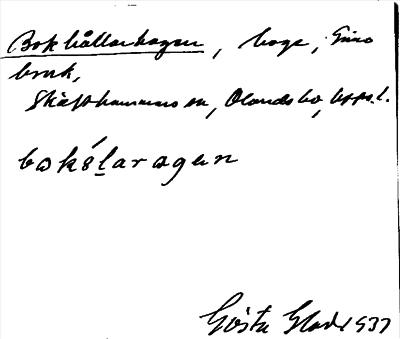 Bokhållarhagen, hage, Gimo
bruk,
Skäfthammars sn, Olands hd, Upps. l.
bokɔ́laragen
Gösta Glad 1937